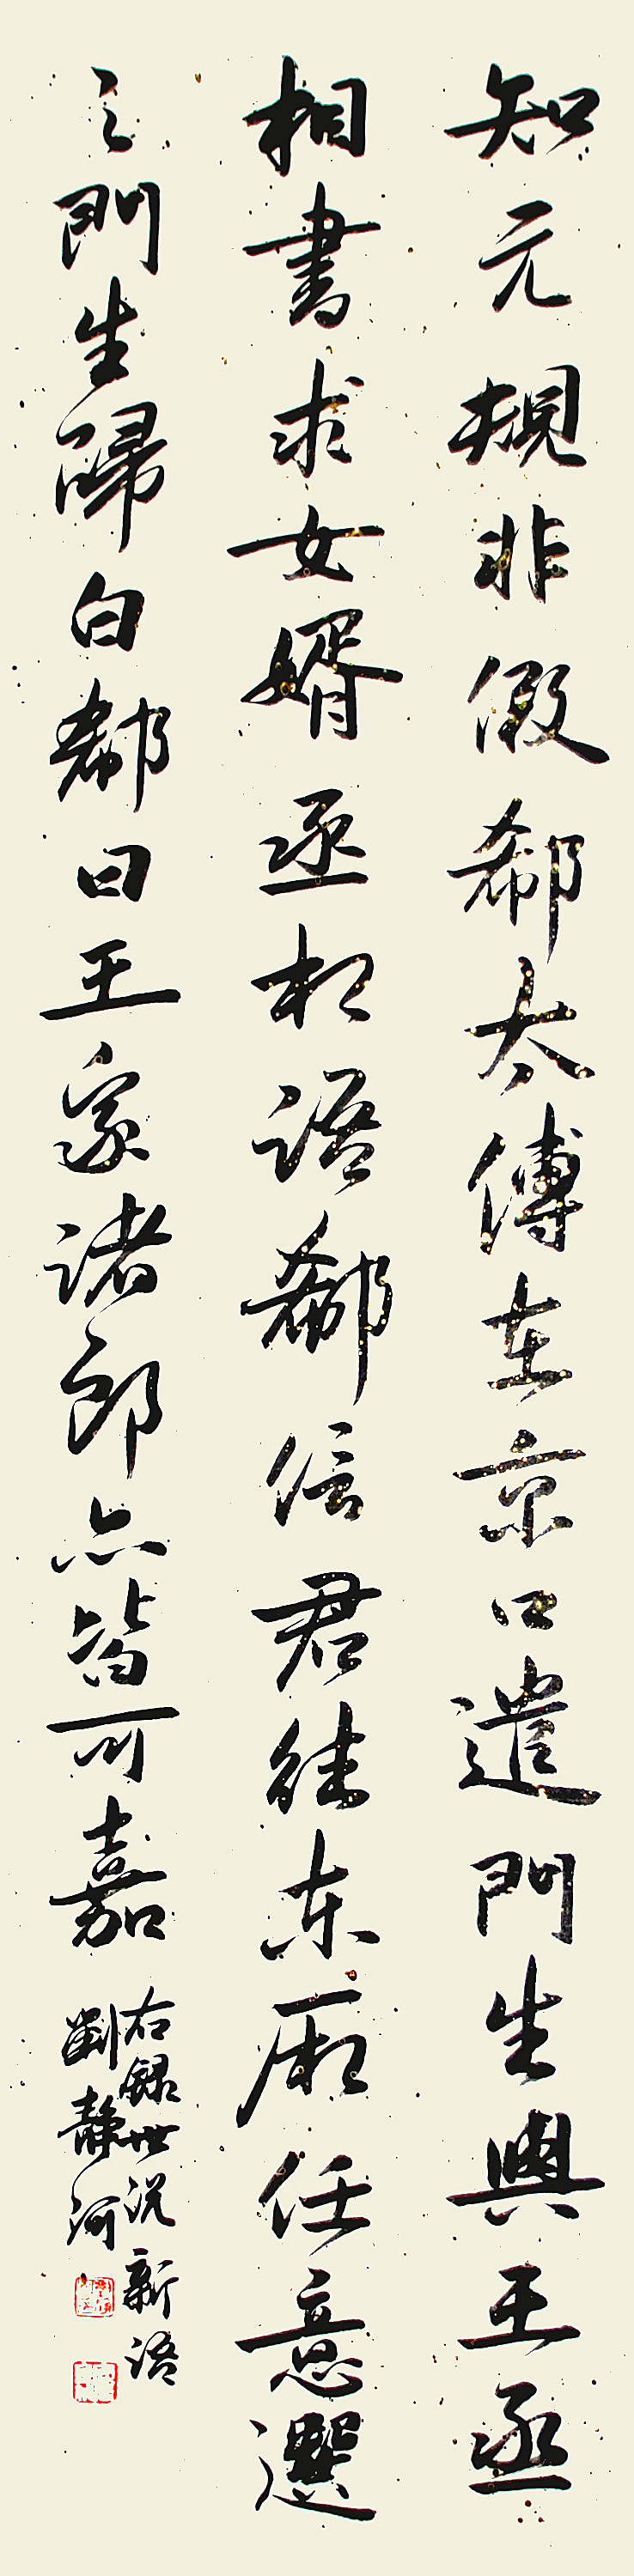 知元規非假郗太傅在京口遣門生與王丞
相書求女婿丞相語郗信君往东厢任意選
之門生歸白郗曰王家诸郎亦皆可嘉
右録世说新语
劉静河